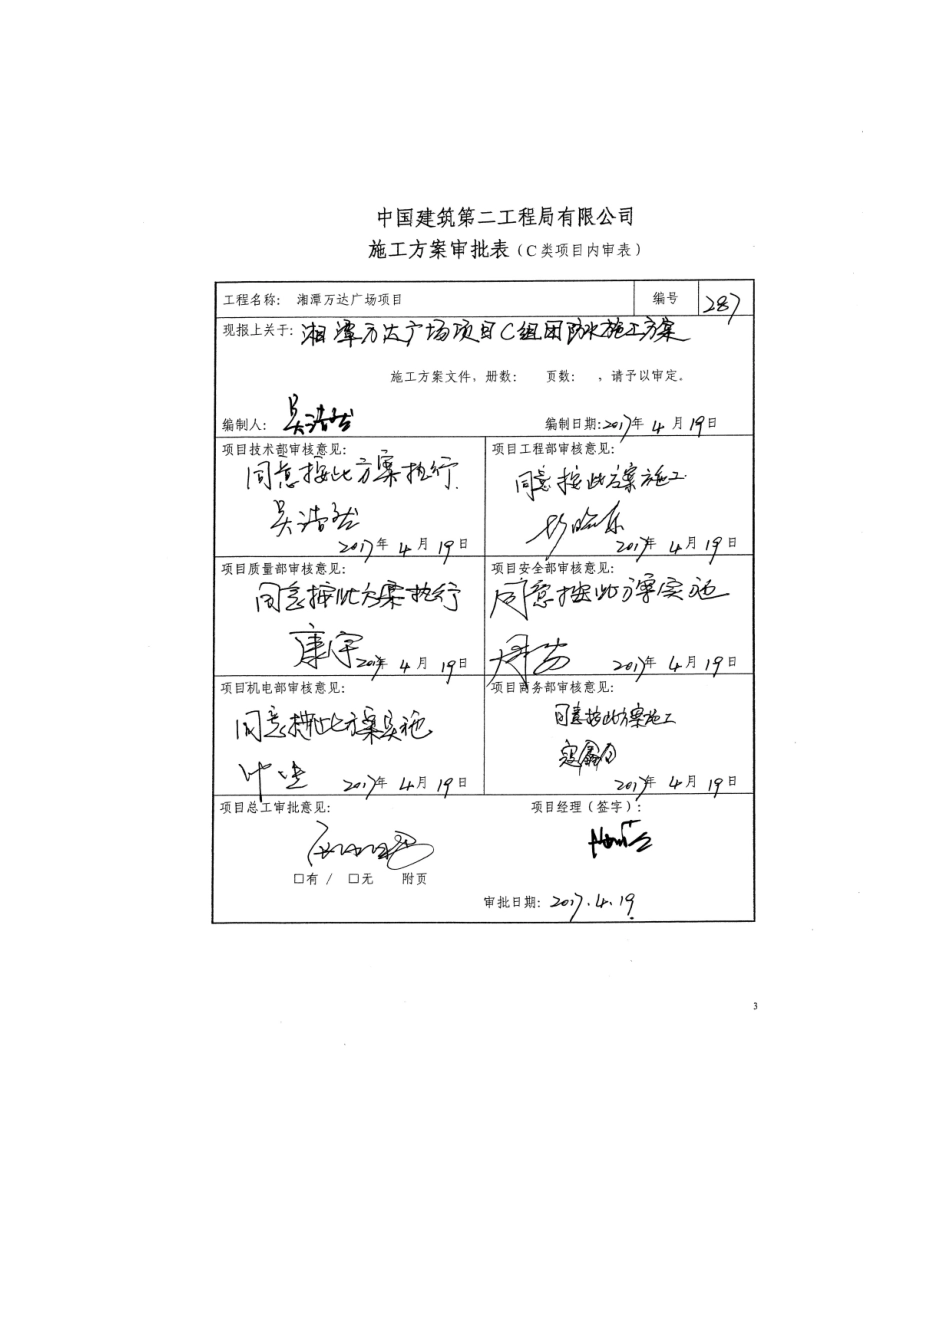 中国建筑第二工程局有限公司
施工方案审批表（C类项目内审表）
工程名称： 湘潭万达广场项目 编号 287
现报上关于：湘潭万达广场项目C组团防水施工方案
施工方案文件，册数： 页数： ，请予以审定。
编制人： 吴浩 编制日期：2017年4月19日
项目技术部审核意见： 项目工程部审核意见：
同意按此方案执行. 同意按此方案施工
吴浩
2017年4月19日 2017年4月19日
项目质量部审核意见： 项目安全部审核意见：
同意按此方案执行 同意按此方案实施
康宇 2017年4月19日 周 2017年4月19日
项目机电部审核意见： 项目商务部审核意见：
同意按此方案实施 同意按此方案施工
叶 2017年4月19日 2017年4月19日
项目总工审批意见： 项目经理（签字）：
□有 / □无 附页
审批日期：2017.4.19
3